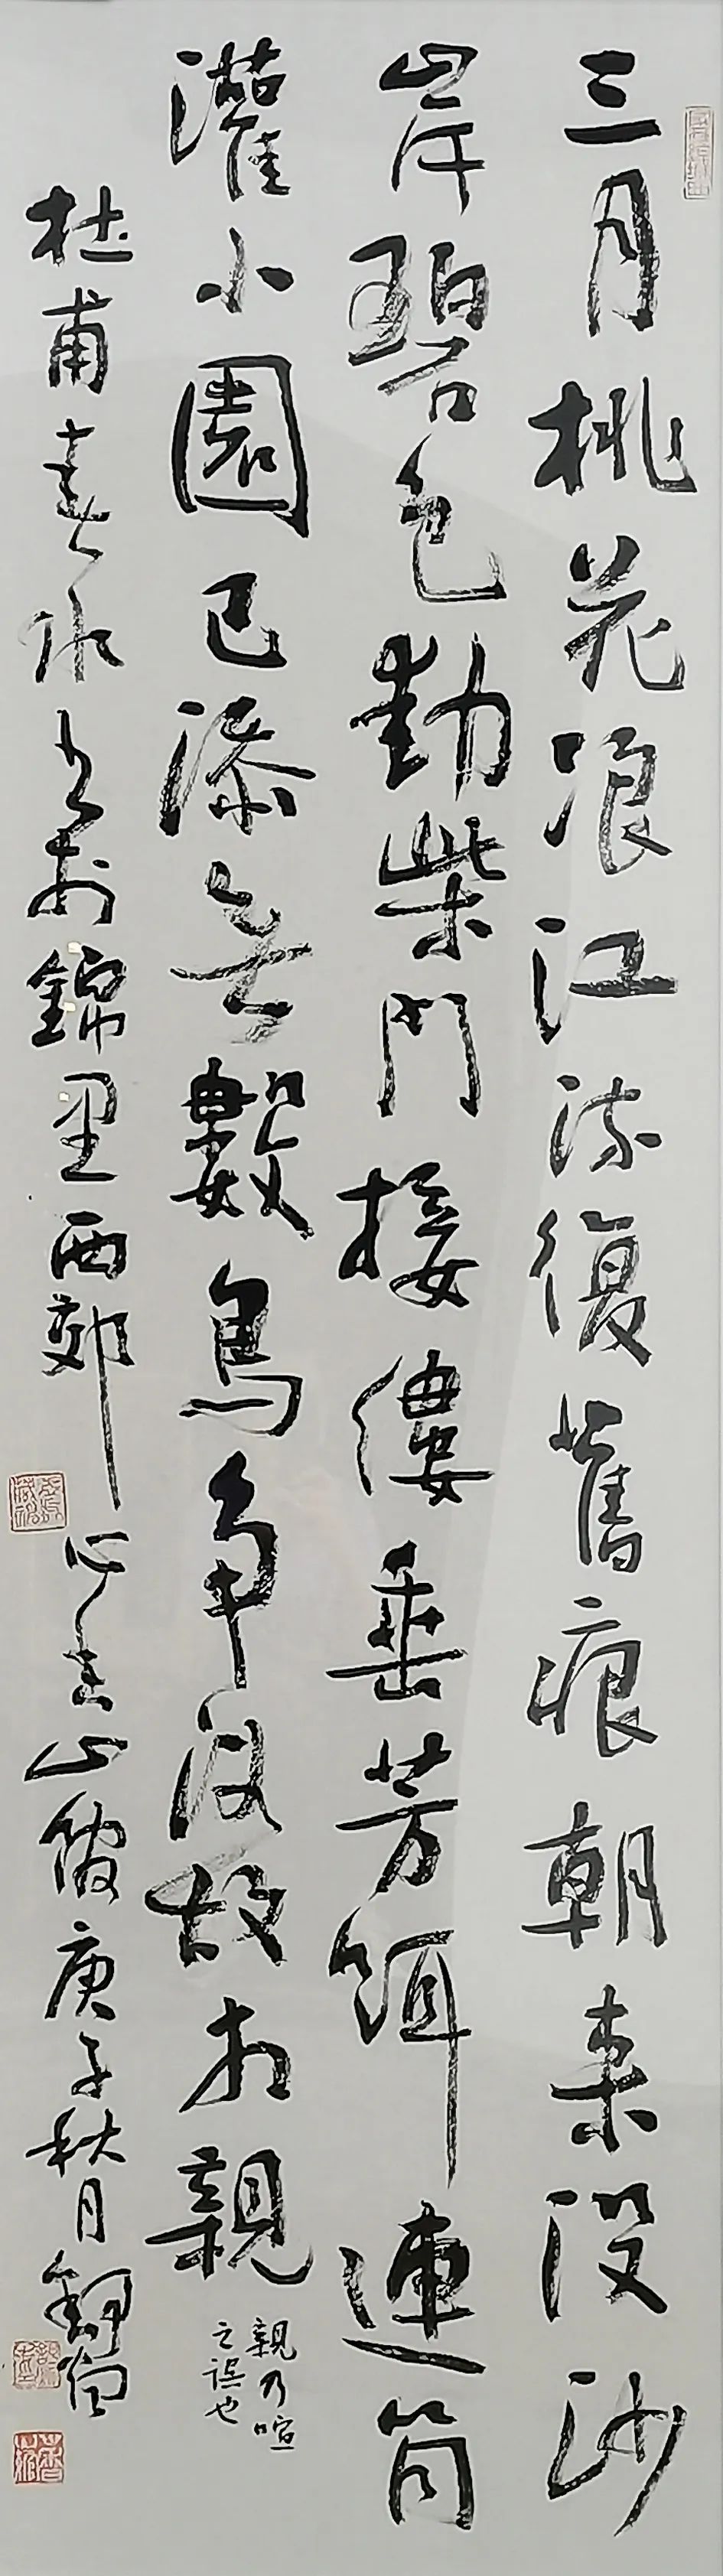 三月桃花浪江流復舊痕朝来没沙
岸碧色動柴門接縷垂芳餌連筒
灌小園已添無數鳥争没故相親
親乃喧
之誤也
杜甫春水 书於錦里西郊 庚子秋月